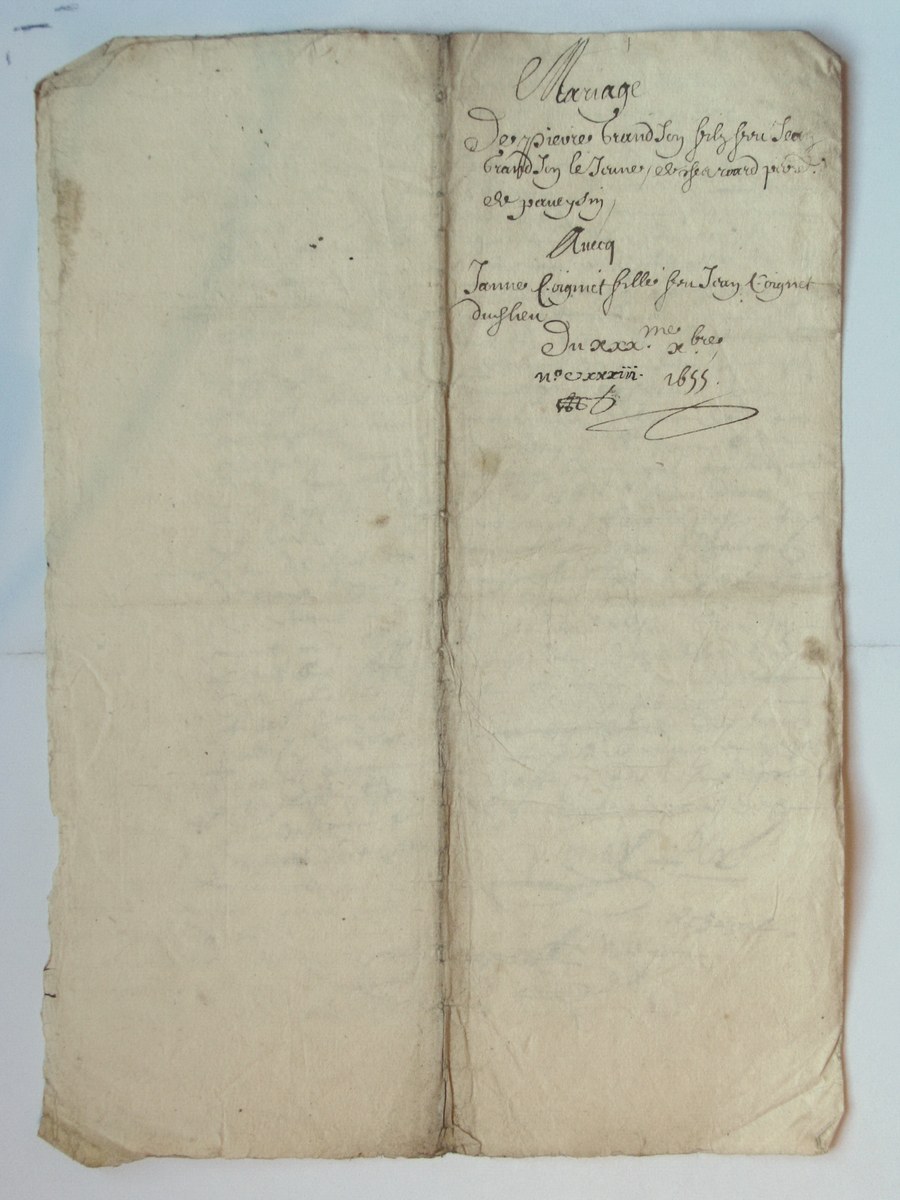 Mariage
De pierre Grand Jon filz feu Jean
Grand Jon le Jeune,
de
Auecq
Janne Coignet fille feu Jean Coignet
dud lieu
Du xxx.me xbre
no cxxxiii. 1655.